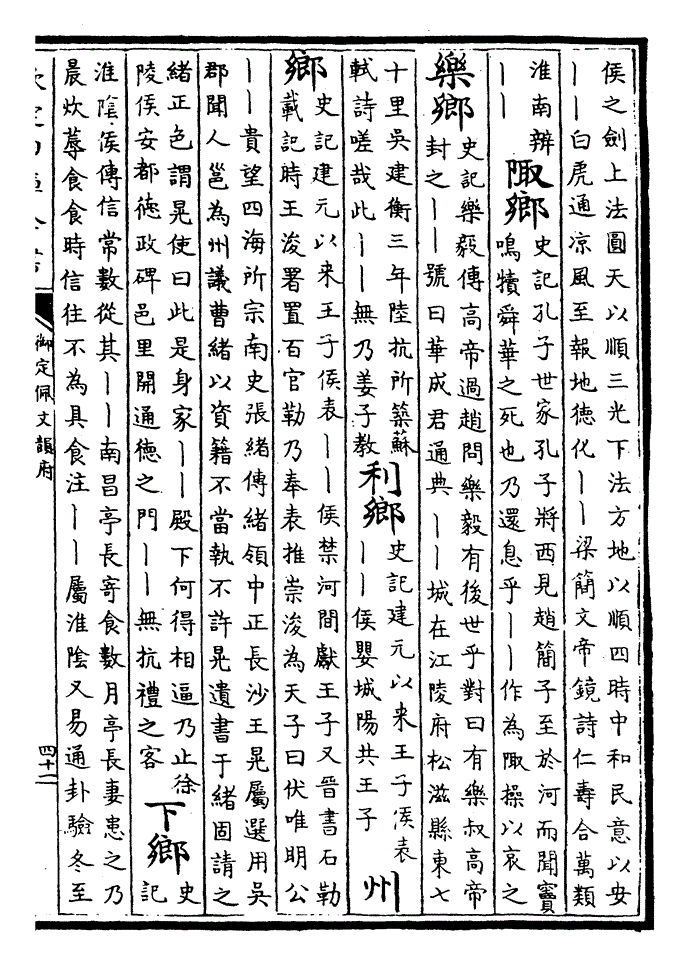 侯之劍上法圓天以順三光下法方地以順四時中和民意以安
丨丨白虎通凉風至報地徳化丨丨梁簡文帝鏡詩仁壽合萬類
淮南辨
丨丨
陬鄉
史記孔子世家孔子將西見趙簡子至於河而聞竇
鳴犢舜華之死也乃還息乎丨丨作為陬操以哀之
樂鄉
史記樂毅傳高帝過趙問樂毅有後世乎對曰有樂叔高帝
封之丨丨號曰華成君通典丨丨城在江陵府松滋縣東七
十里吳建衡三年陸抗所築蘇
軾詩嗟哉此丨丨無乃姜子教
利鄉
史記建元以来王子侯表
丨丨侯嬰城陽共王子
州
鄉
史記建元以来王子侯表丨丨侯禁河間獻王子又晉書石勒
載記時王浚署置百官勒乃奉表推崇浚為天子曰伏唯明公
丨丨貴望四海所宗南史張緒傳緒領中正長沙王晃屬選用吳
郡聞人邕為州議曹緒以資籍不當執不許晃遺書于緒固請之
緒正色謂晃使曰此是身家丨丨殿下何得相逼乃止徐
陵侯安都徳政碑邑里開通徳之門丨丨無抗禮之客
下鄉
史
記
淮陰侯傳信常數從其丨丨南昌亭長寄食數月亭長妻患之乃
晨炊蓐食食時信往不為具食注丨丨屬淮陰又易通卦驗冬至
御定佩文韻府
四十二